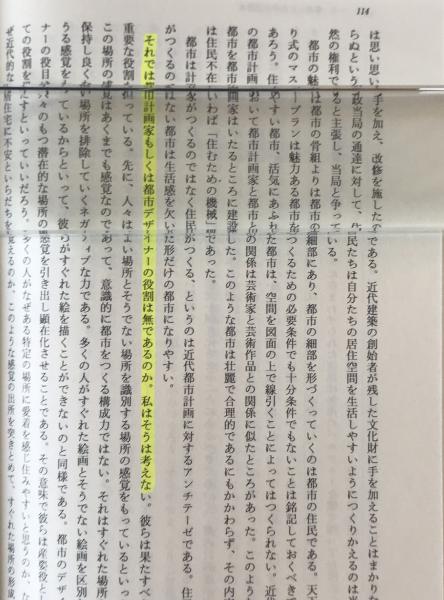 114
は思い思い 手を加え、改修を施した である。近代建築の創始者が残した文化財に手を加えることはまかりな
らぬという 政当局の通達に対して、 民たちは自分たちの居住空間を生活しやすいようにつくりかえるのは当
然の権利で ると主張し、当局と争って いる。
都市の魅 は都市の骨組よりは都市の 細部にあり、都市の細部を形づくっていくのは都市の住民である。天
り式のマス ープランは魅力ある都市を つくるための必要条件でも十分条件でもないことは銘記しておくべき
あろう。住 やすい都市、活気にあふれ た都市は、空間を図面の上で線引くことによってはつくられない。近
の都市計画 おいて都市計画家と都市と の関係は芸術家と芸術作品との関係に似たところがあった。このよう
都市を都市 画家はいたるところに建設 した。このような都市は壮麗で合理的であるにもかかわらず、その内
は住民不在 いわば「住むための機械」 であった。
都市は計画 がつくるのではなく住民 がつくる、というのは近代都市計画に対するアンチテーゼである。住
がつくるの ない都市は生活感を欠い た形だけの都市になりやすい。
それでは都市計画家もしくは都市デザイナーの役割は無であるのか。私はそうは考えない。彼らは果たすべ
重要な役割 担っている。先に、人々は よい場所とそうでない場所を識別する場所の感覚をもっているといっ
この場所の感覚はあくまでも感覚なので あって、意識的に都市をつくる構成力ではない。それはすぐれた場所
保持し良くない場所を排除していくネガティブな力である。多くの人がすぐれた絵画とそうでない絵画を区別
うる感覚をもっているからといって、彼らがすぐれた絵を描くことができないのと同様である。都市のデザ
ナーの役目は人々のもつ潜在的な場所の感覚を引き出し顕在化させることである。その意味で彼らは産婆役と
ての役割を果たすといっていいだろう。多くの人がなぜある特定の場所に愛着を感じ住みやすいと思うのか、な
ぜ近代的な高層住宅に不安といらだちを覚えるのか、このような感覚の出所を突きとめて、すぐれた場所の形成